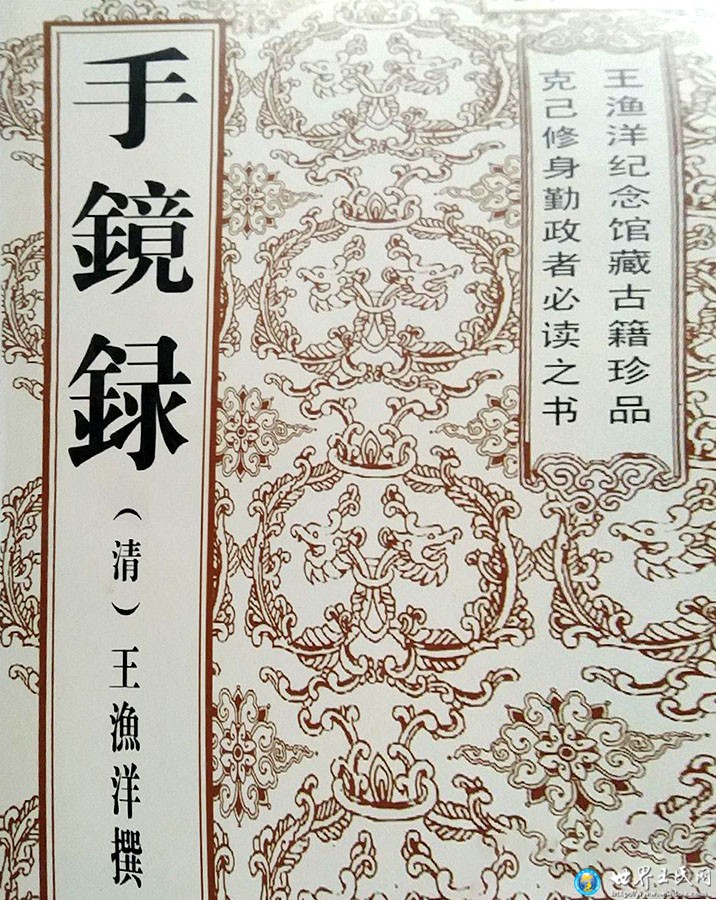 王渔洋纪念馆藏古籍珍品
克己修身勤政者必读之书
手鏡録
（清）王漁洋撰
世界王氏网